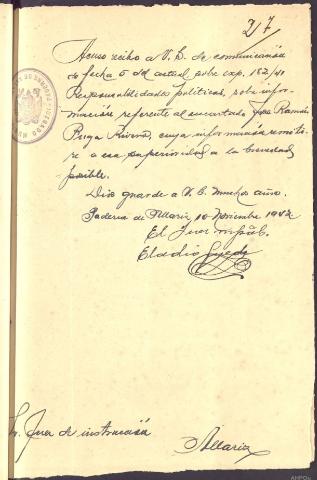 27
Acuso recibo a V. S. de comunicación
de fecha 5 del actual sobre exp. 182/41
Responsabilidades politicas, sobre infor-
mación referente al encartado Jose Ramón
Puga Rivero, cuya información remiti-
re a esa superioridad a la brevedad
posible.
Dios guarde a V. S. muchos años.
Paderne de Allariz 10 Noviembre 1942
El Juez
Eladio
Sr. Juez de instrucción
Allariz